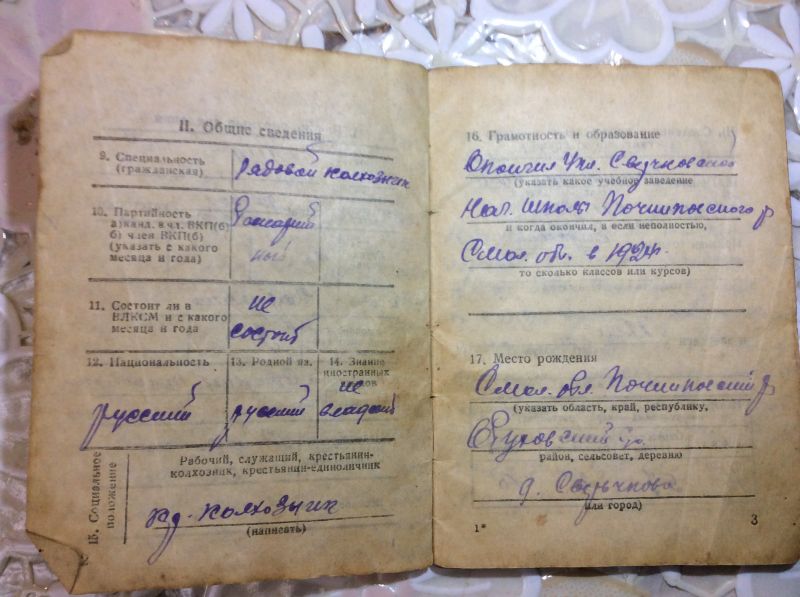 II. Общие сведения
9. Специальность
(гражданская)
рядовой колхозник
10. Партийность
а) канд. в чл. ВКП(б)
б) член ВКП(б)
(указать с какого
месяца и года)
11. Состоит ли в
ВЛКСМ и с какого
месяца и года
не
состоит
12. Национальность
русский
13. Родной яз.
русский
14. Знание
иностранных
не
владеет
15. Социальное
положение
Рабочий, служащий, крестьянин-
колхозник, крестьянин-единоличник
колхозник
(написать)
16. Грамотность и образование
(указать какое учебное заведение
Нач. школу Починковского р
и когда окончил, а если неполностью,
Смол. обл. в 192
то сколько классов или курсов)
17. Место рождения
Смол. обл. Починковский р
(указать область, край, республику,
район, сельсовет, деревню
д.
или город)
1*
3